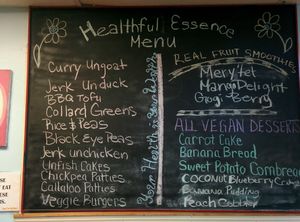 Healthful Essence
Menu
Curry Ungoat
Jerk Unduck
BBQ Tofu
Collard Greens
Rice & Peas
Black Eye Peas
Jerk unchicken
Unfish Cakes
Chickpea Patties
Callaloo Patties
Veggie Burgers
Your Health is
REAL FRUIT SMOOTHIES
Mango Delight
Berry
ALL VEGAN DESSERTS
Carrot Cake
Banana Bread
Sweet Potato Cornbread
COCONUT Blueberry
Banana Pudding
Peach Cobbler